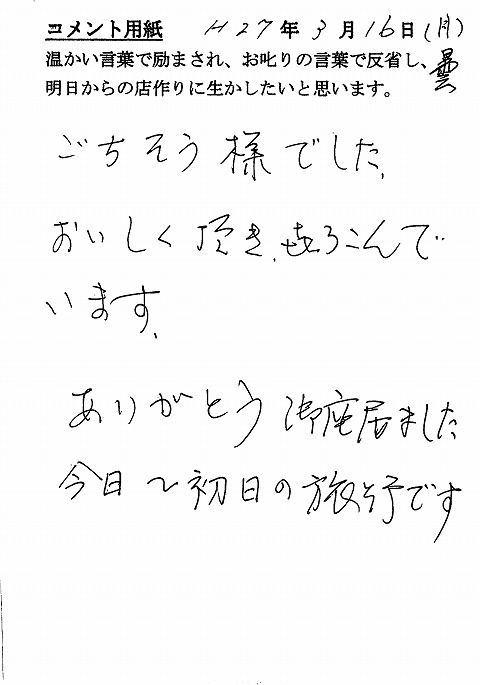 コメント用紙 H27年3月16日(月)
温かい言葉で励まされ、お叱りの言葉で反省し、曇
明日からの店作りに生かしたいと思います。
ごちそう様でした、
おいしく頂き、㐂ろこんで
います、
ありがとう御座居ました
今日~初日の旅行です